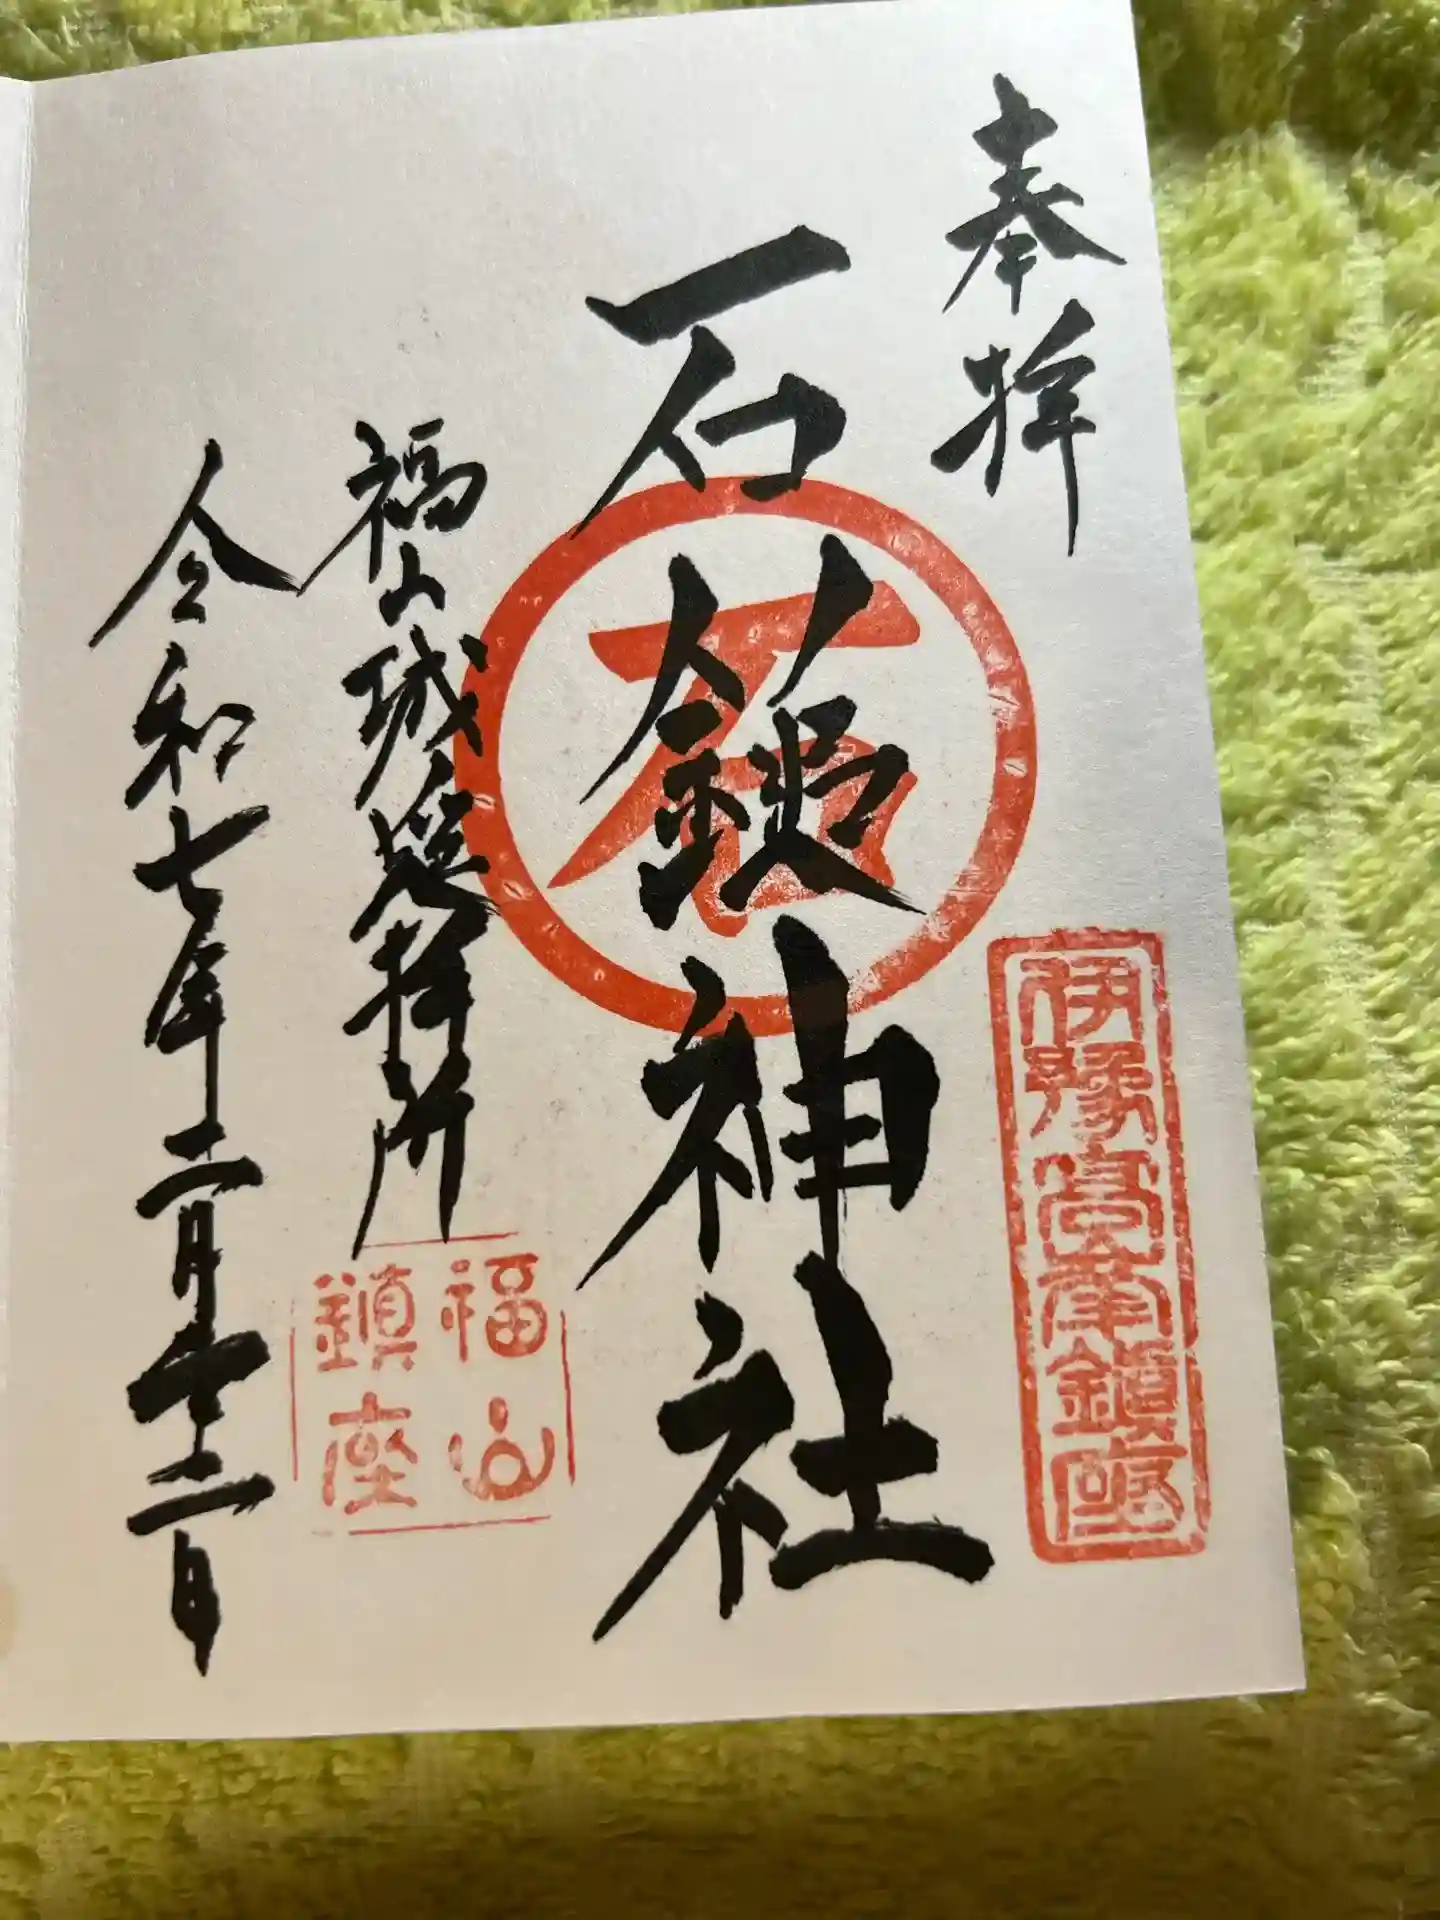 奉拝
伊豫高峯鎮座
石
石鎚神社
福山城遥拝所
福山
鎮座
令和七年二月十二日